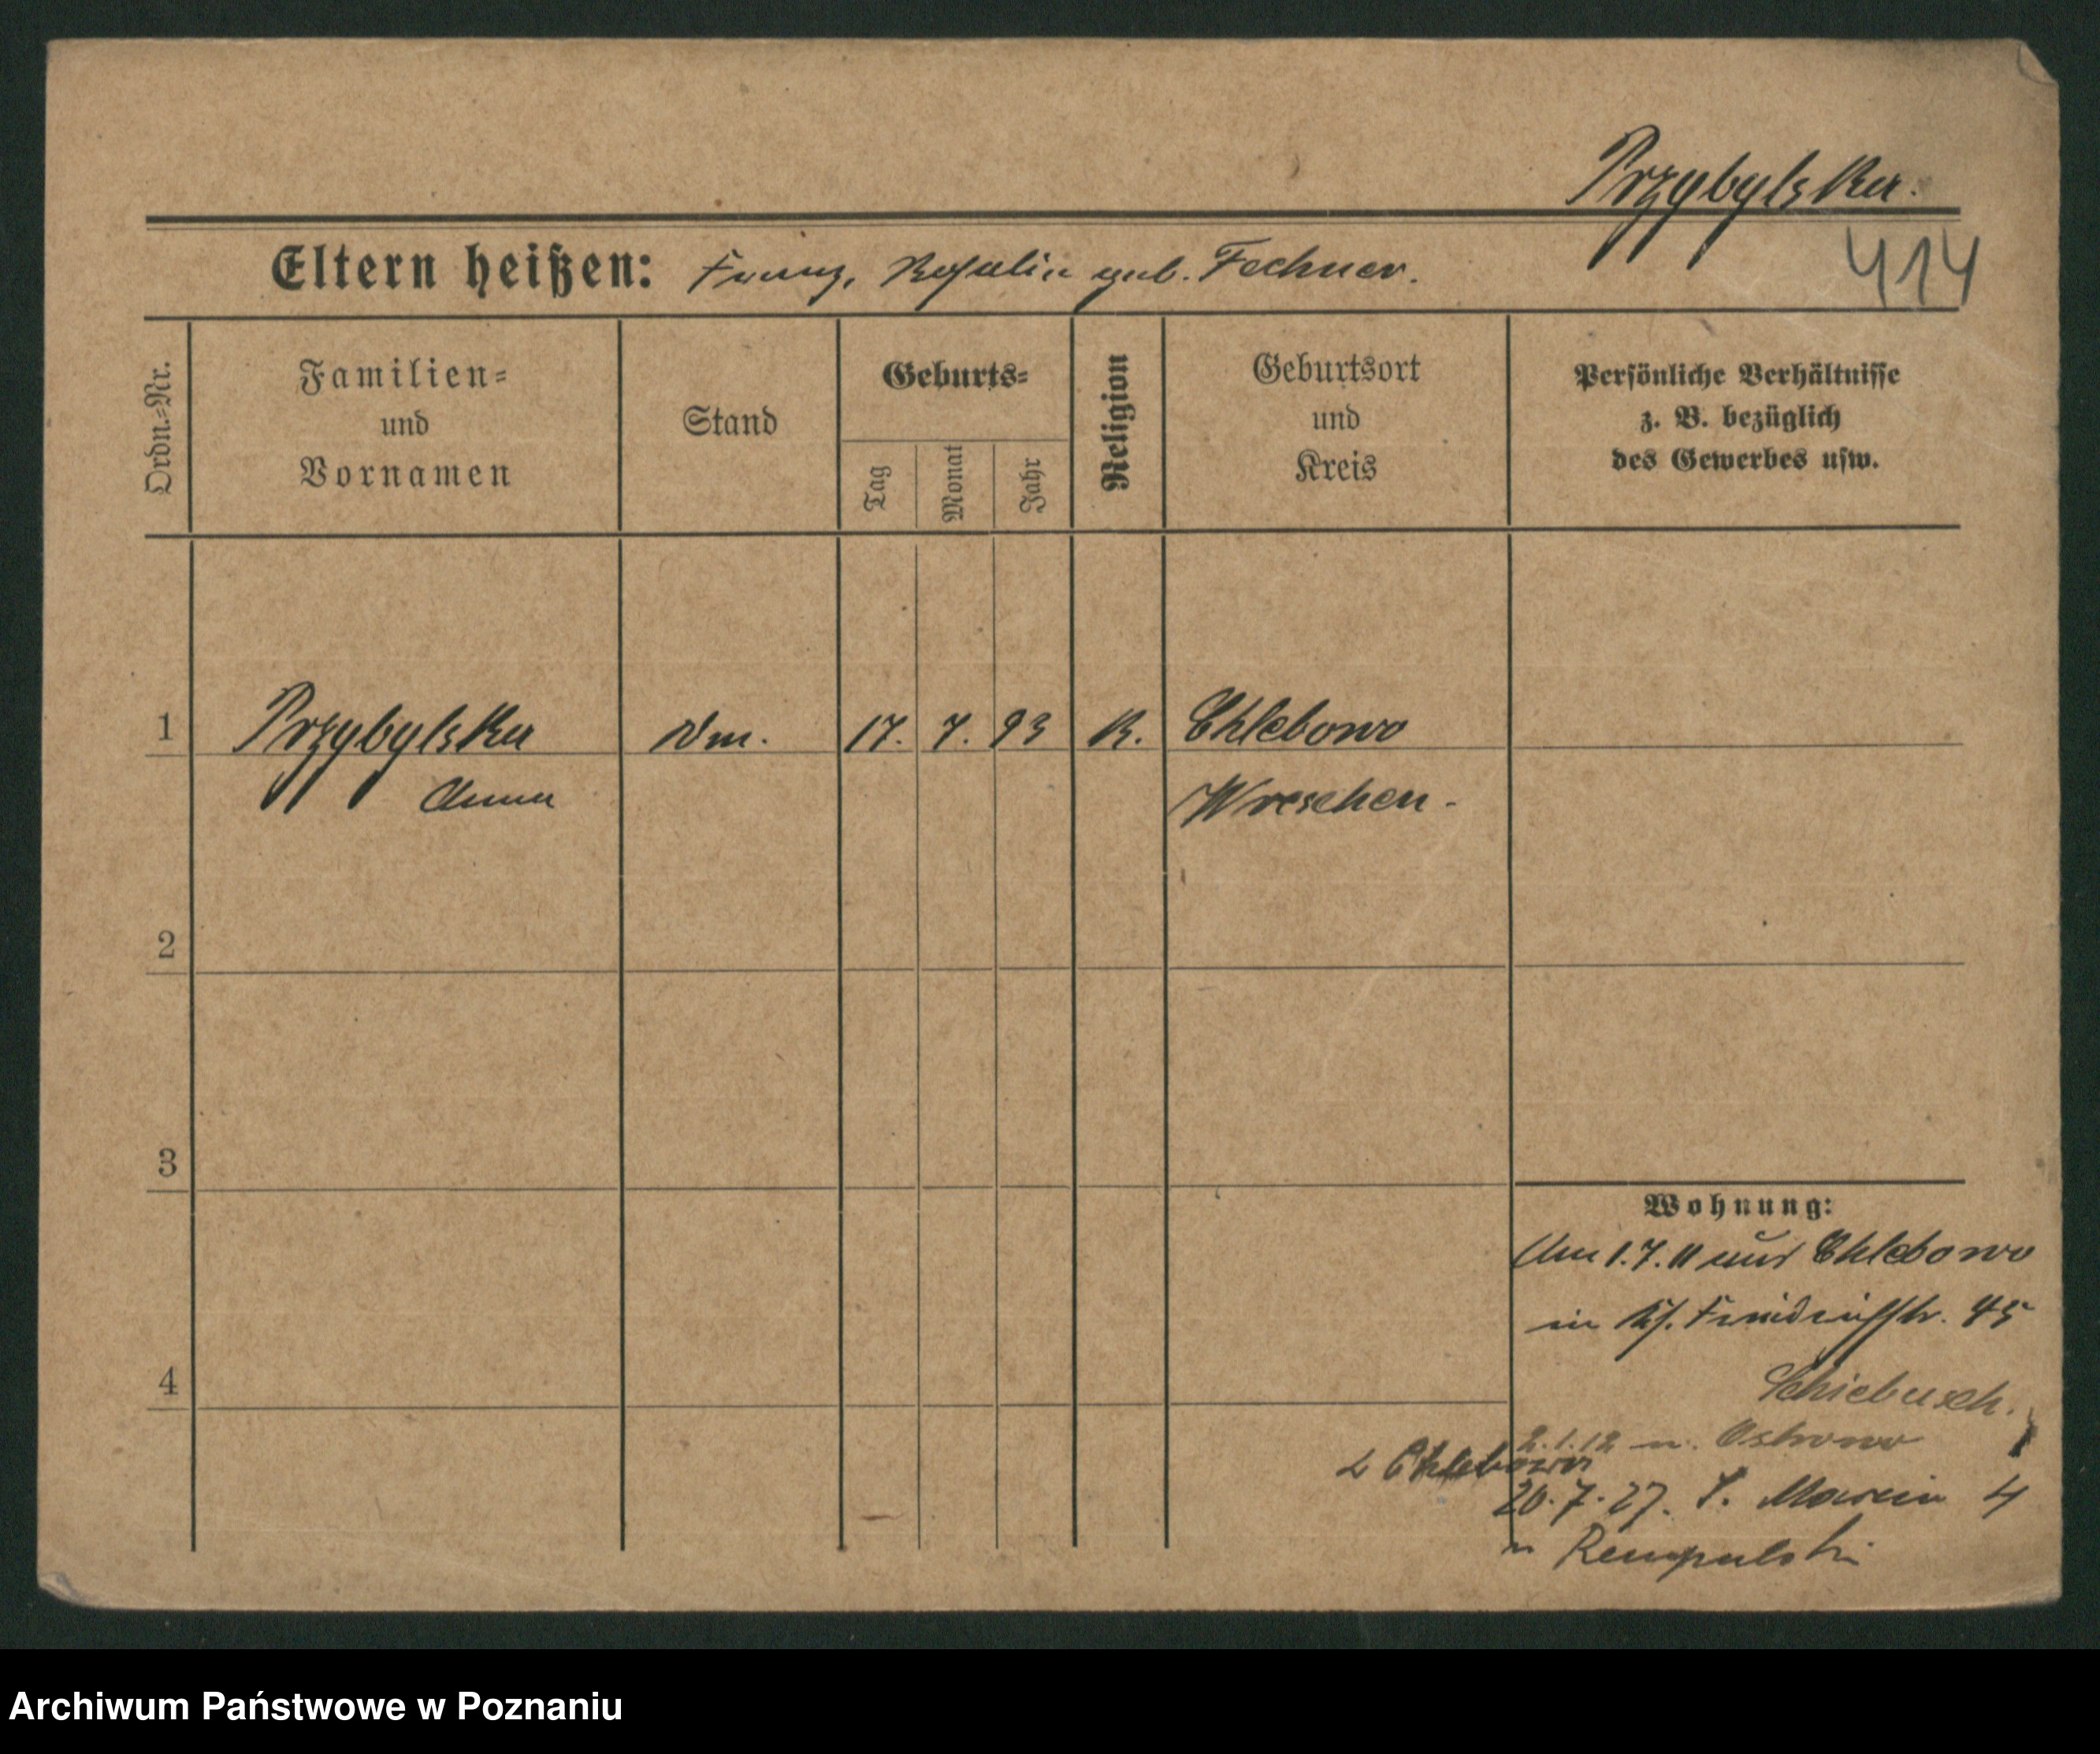 Przybylska.
414
Eltern heißen: Franz, Rosalia geb. Fechner.
Ordn.=Nr.
Familien=
und
Vornamen
Stand
Geburts=
Tag
Monat
Jahr
Religion
Geburtsort
und
Kreis
Persönliche Verhältnisse
z. B. bezüglich
des Gewerbes usw.
1 Przybylska Dm. 17. 7. 93 K. Chlebowo
Anna Wreschen-
2
3
4
Wohnung:
Am 1.7.11 aus Chlebowo
in Friedrichstr. 45
Schiebusch.
2.1.12 n. Ostrowo
z Chlebowa
26.7.27. S. Marcin 4